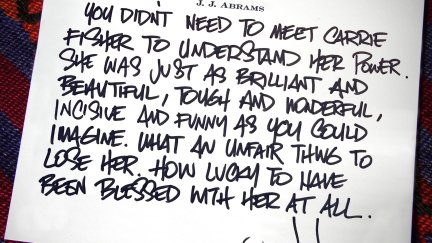 J. J. ABRAMS
YOU DIDN'T NEED TO MEET CARRIE
FISHER TO UNDERSTAND HER POWER.
SHE WAS JUST AS BRILLIANT AND
BEAUTIFUL, TOUGH AND WONDERFUL,
INCISIVE AND FUNNY AS YOU COULD
IMAGINE. WHAT AN UNFAIR THING TO
LOSE HER. HOW LUCKY TO HAVE
BEEN BLESSED WITH HER AT ALL.